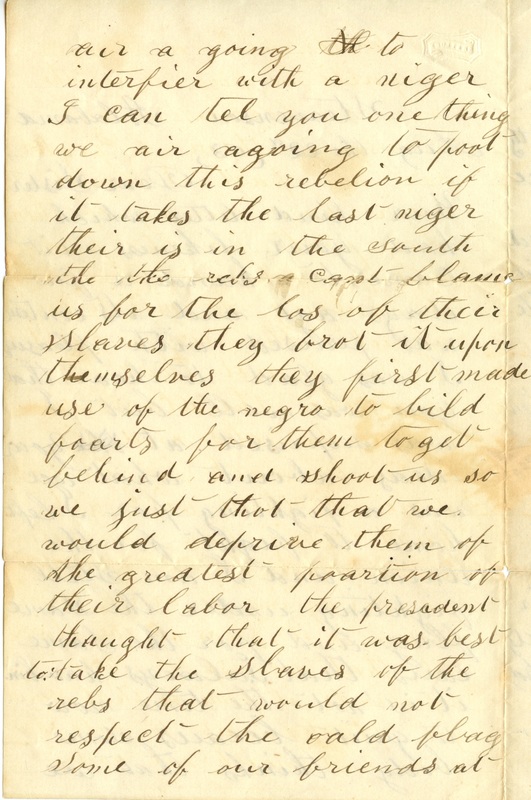 air a going to
interfier with a niger
I can tel you one thing
we air agoing to poot
down this rebelion if
it takes the last niger
their is in the south
the the rebs a cant blame
us for the los of their
slaves they brot it upon
themselves they first made
use of the negro to bild
foarts for them to get
behind and shoot us so
we just thot that we
would deprive them of
the greatest poartion of
their labor the presadent
thaught that it was best
to take the slaves of the
rebs that would not
respect the oald flag
some of our friends at